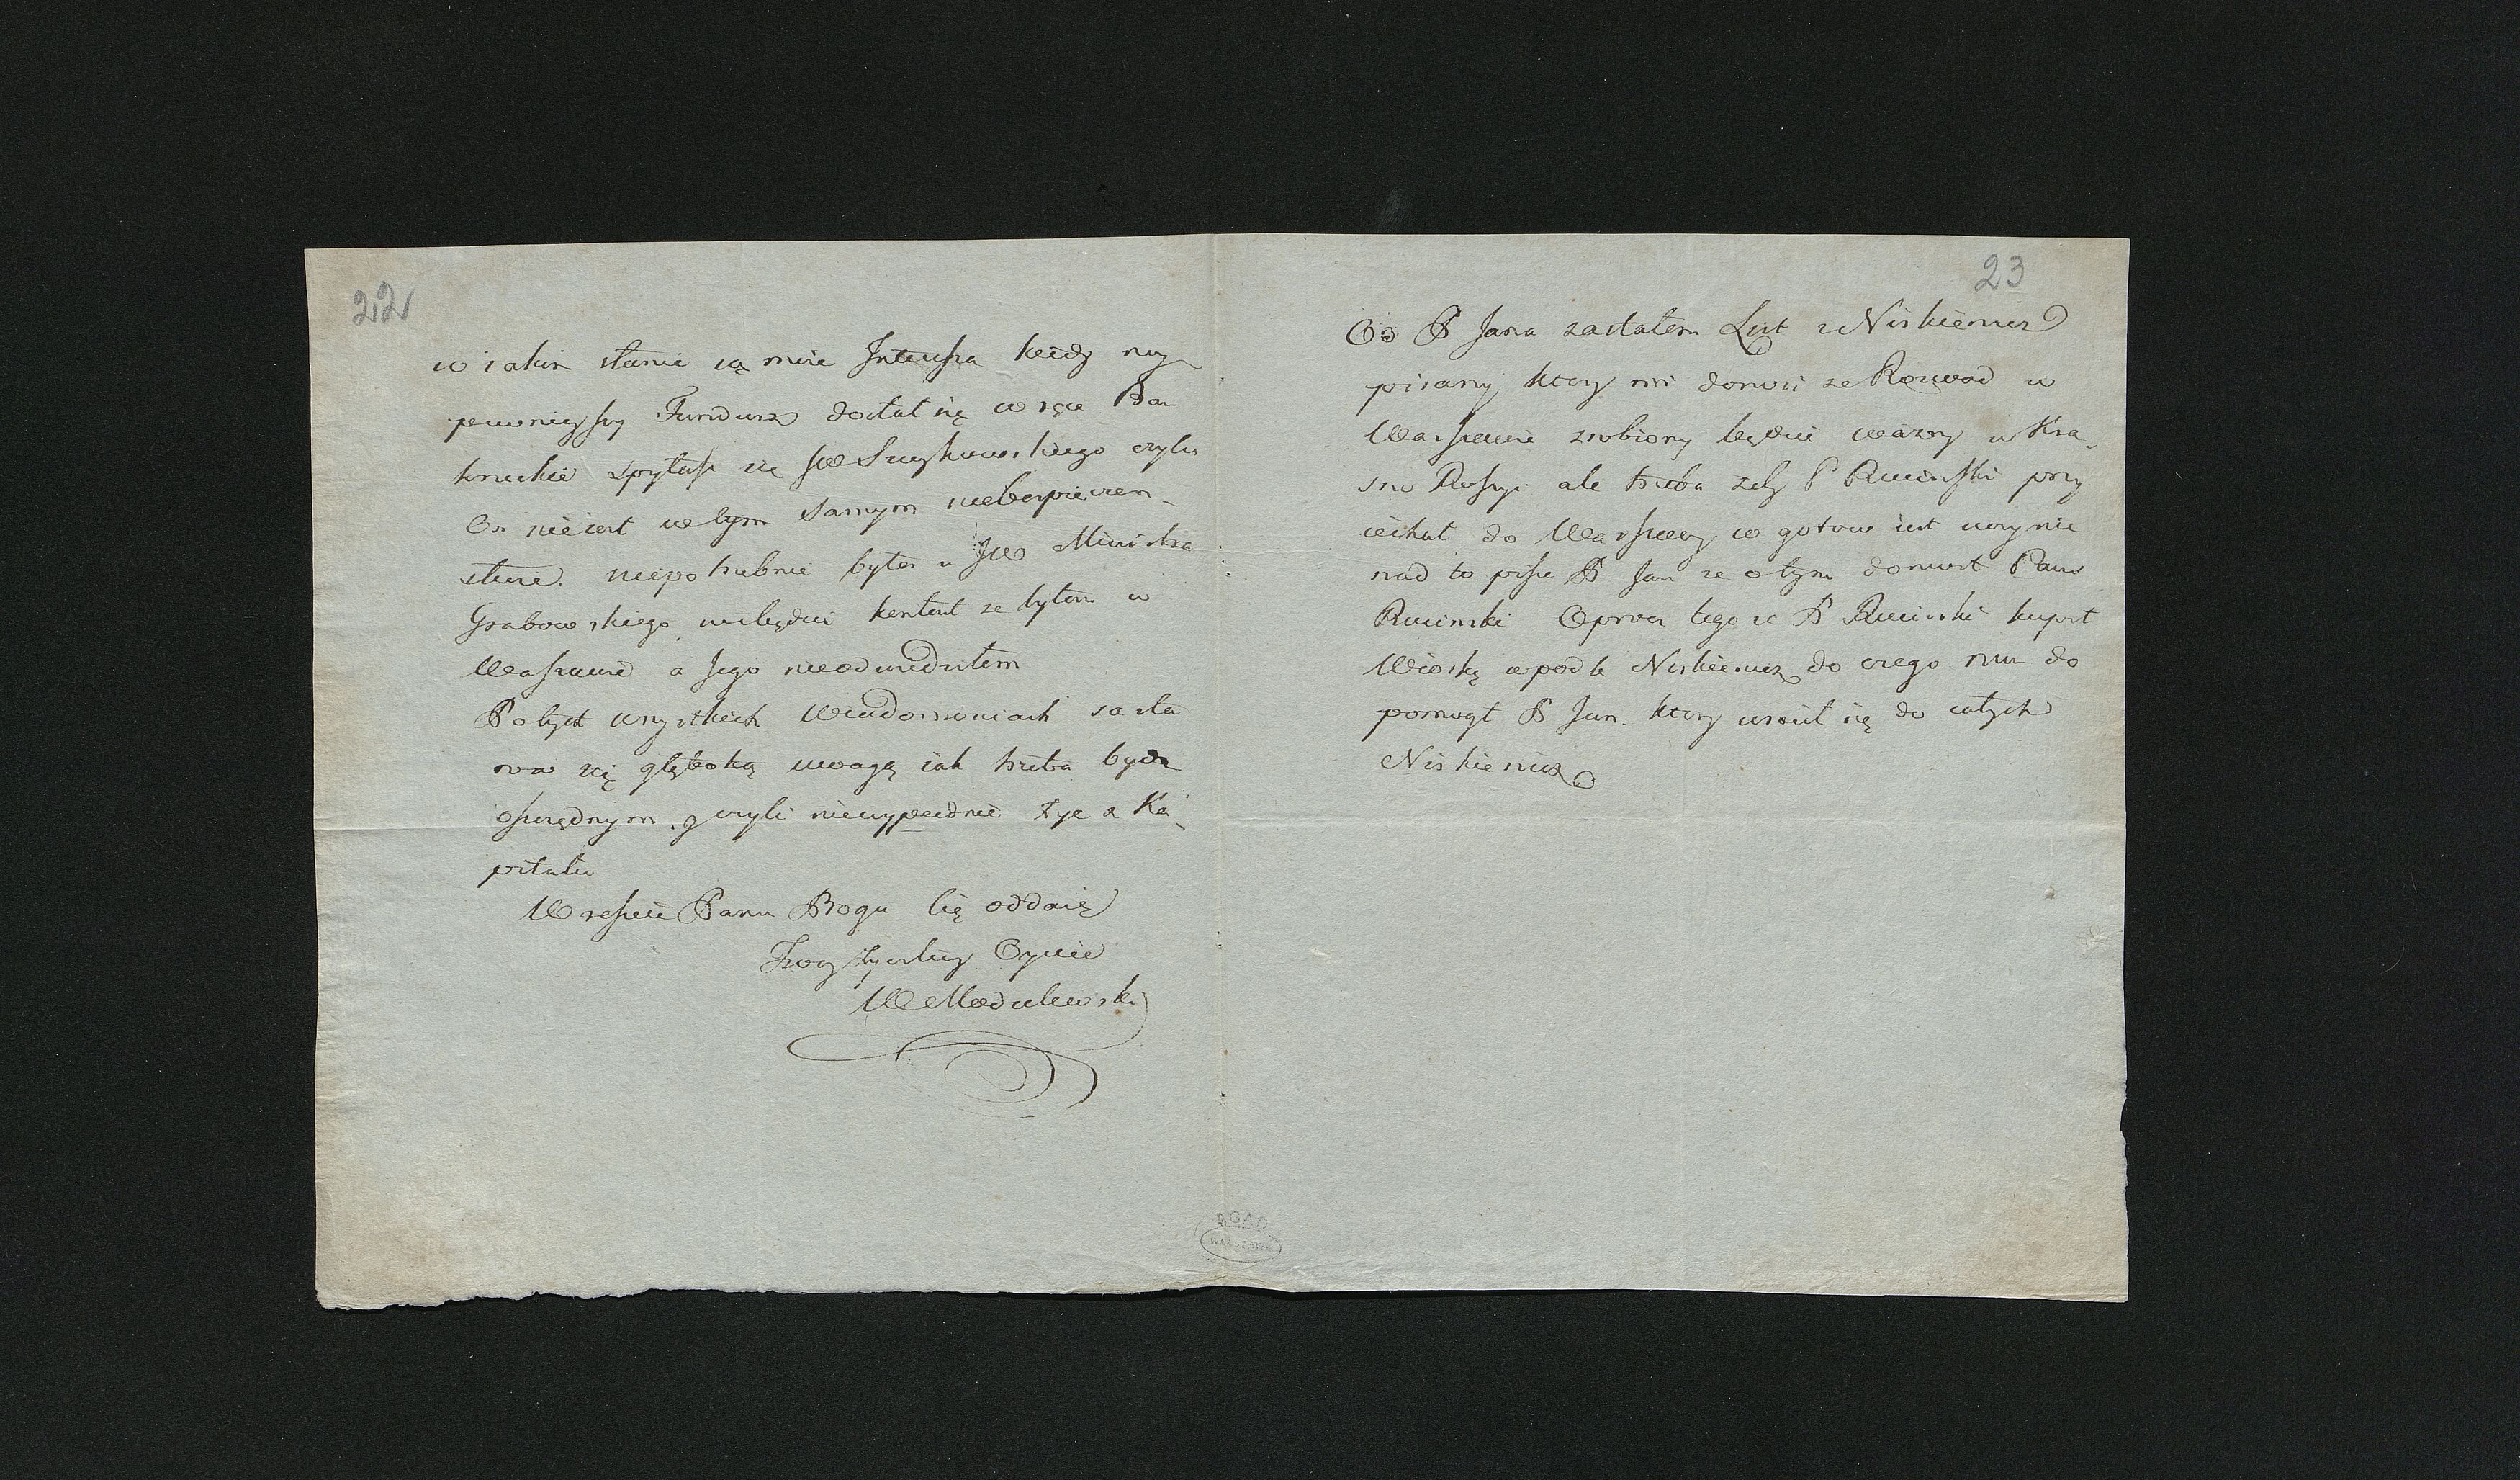 22
w iakim stanie są moie Interessa kiedy nay
pewnieyszy Fundusz dostał się w ręce Ban
kruckie Spytaysię JW czyli
On nieiest w tym samym niebespieczen
stwie. niepotrzebnie byłes u JW Ministra
Grabowskiego niebędzie kontent ze byłem w
Warszawie a Jego nieodwiedziłem
Po tych wszystkich Wiadomosciach zasta
now się głęboką uwagą iak trzeba bydz
oszczędnym czyli niewypadnie żyć z Ka
pitału
W reszcie Panu Bogu Cię oddaię
Twoy życzliwy Oyciec
W Modzelewski
23
Od P Jana zastałem List z Niskieniewicz
pisany ktory mi donosi ze Rozwod w
Warszawie zrobiony będzie ważny w
Rossyi ale trzeba zeby P Ruciński przy
iechał do Warszawy co gotow iest uczynic
nad to pisze P Jan ze o tym doniosł Panu
Ruciński Oprocz tego ze P Ruciński kupił
Wioskę do czego mu do
pomogł P Jan. ktory wrocił się do
AGAD
WARSZAWA